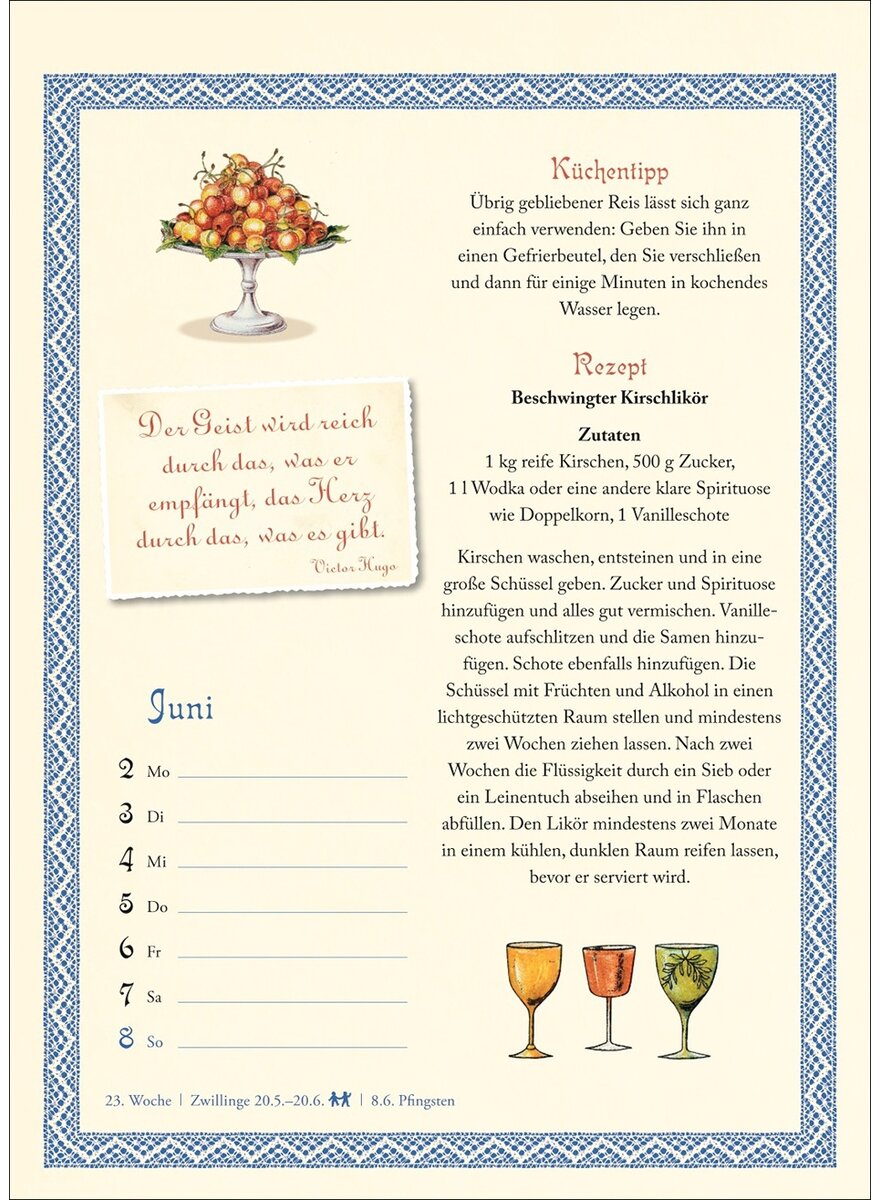 Küchentipp
Übrig gebliebener Reis lässt sich ganz
einfach verwenden: Geben Sie ihn in
einen Gefrierbeutel, den Sie verschließen
und dann für einige Minuten in kochendes
Wasser legen.
Rezept
Beschwingter Kirschlikör
Zutaten
1 kg reife Kirschen, 500 g Zucker,
1 l Wodka oder eine andere klare Spirituose
wie Doppelkorn, 1 Vanilleschote
Kirschen waschen, entsteinen und in eine
große Schüssel geben. Zucker und Spirituose
hinzufügen und alles gut vermischen. Vanille-
schote aufschlitzen und die Samen hinzu-
fügen. Schote ebenfalls hinzufügen. Die
Schüssel mit Früchten und Alkohol in einen
lichtgeschützten Raum stellen und mindestens
zwei Wochen ziehen lassen. Nach zwei
Wochen die Flüssigkeit durch ein Sieb oder
ein Leinentuch abseihen und in Flaschen
abfüllen. Den Likör mindestens zwei Monate
in einem kühlen, dunklen Raum reifen lassen,
bevor er serviert wird.
Der Geist wird reich
durch das, was er
empfängt, das Herz
durch das, was es gibt.
Victor Hugo
Juni
2 Mo
3 Di
4 Mi
5 Do
6 Fr
7 Sa
8 So
23. Woche | Zwillinge 20.5.–20.6. | 8.6. Pfingsten